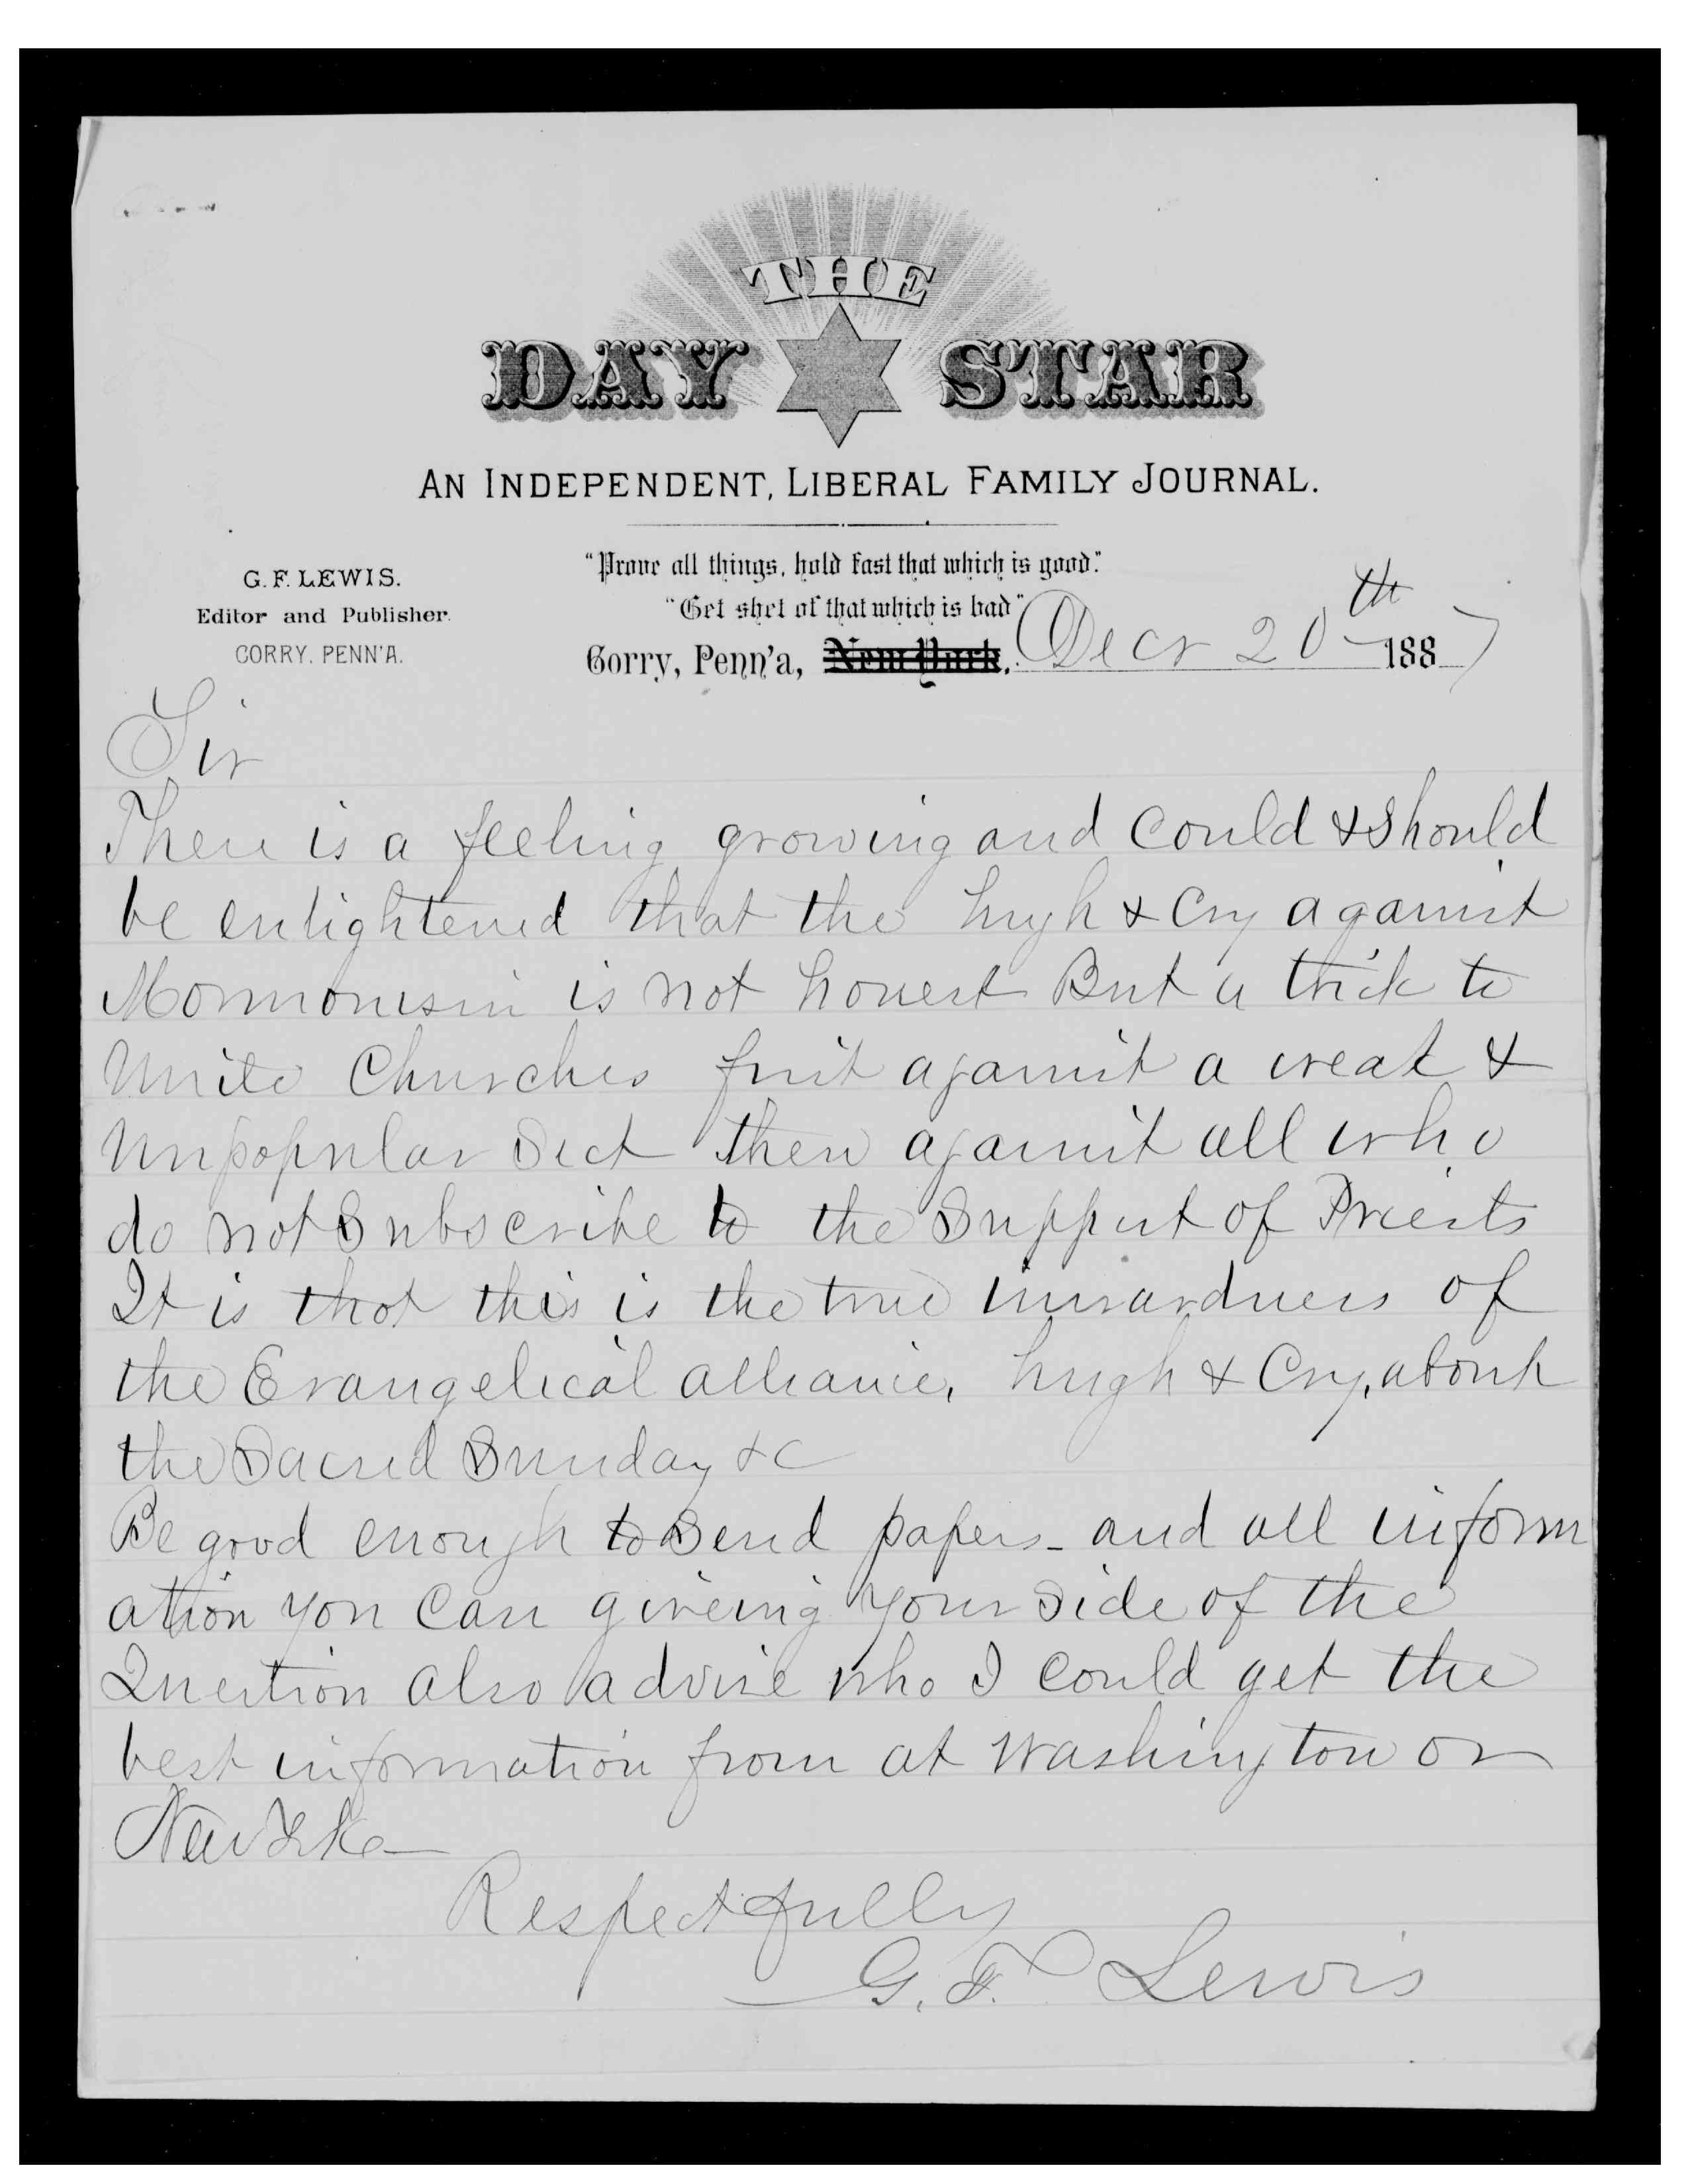 THE
DAY STAR
AN INDEPENDENT, LIBERAL FAMILY JOURNAL.
G. F. LEWIS.
Editor and Publisher.
CORRY, PENN'A.
"Prove all things, hold fast that which is good."
"Get shet of that which is bad"
Corry, Penn'a, New York. Decr 20th 1887
Sir
There is a feeling growing and Could & Should
be enlightened that the hugh & Cry against
Mormonism is not honest But a trick to
Unite Churches first against a weak &
Unpopular Sect then against all who
do not Subscribe to the Support of Priests
It is that this is the true inwardness of
the Evangelical alliance, hugh & Cry, about
the Sacred Sunday &c
Be good enough to Send papers - and all inform
ation you Can giveing your Side of the
Question also advise who I could get the
best information from at Washington or

Respectfully
G. F. Lewis